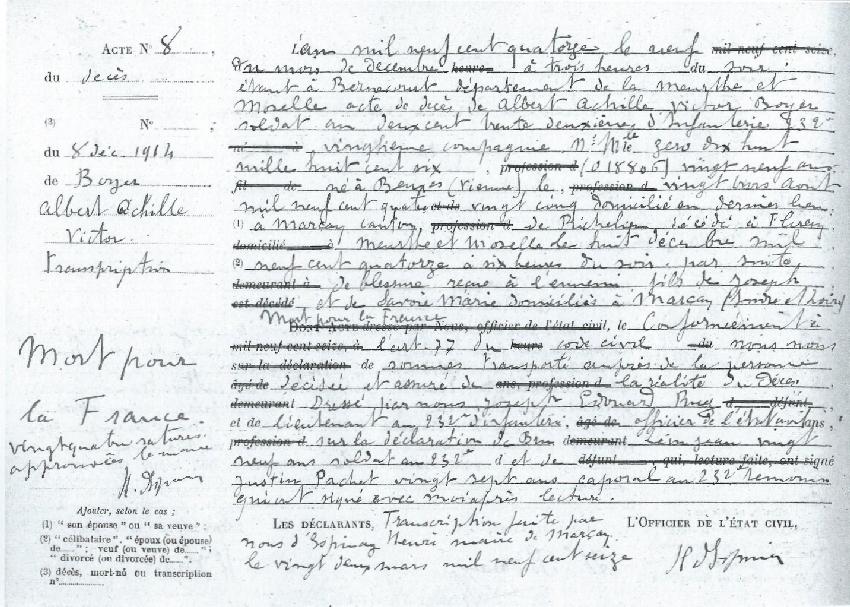 ACTE N° 8
du decès
(3) N°
du 8 déc. 1914
de Boyer
Albert Achille
Victor.
transcription
Mort pour
la France.
vingt quatre ratures
approuvées le maire
H. d'Espinay
Ajouter, selon le cas ;
(1) " son épouse " ou " sa veuve " :
(2) " célibataire ". " époux (ou épouse)
de...... " ; veuf (ou veuve) de...... " ;
" divorcé (ou divorcée) de......".
(3) décès, mort-né ou transcription
n°
L'an mil neuf cent quatorze le neuf mil neuf cent seize,
du mois de decembre heures à trois heures du soir.
étant à Bernecourt département de la meurthe et
Moselle acte de decès de Albert Achille Victor Boyer
soldat au deux cent trente deuxième d'Infanterie 232e
vingtième compagnie N° Mle zero dix huit
mille huit cent six profession d (018806) vingt neuf ans
fil de né à Berges (Vienne) le profession d vingt trois Août
mil neuf cent quatre vingt cinq domicilié en dernier lieu
(1) à Marcay canton profession d de Richelieu, décédé à Flirey
domicilié à Meurthe et Moselle le huit décembre mil
(2) neuf cent quatorze à six heures du soir par suite
demeurant à de blessure reçue à l'ennemi fils de Joseph
est décédé et de Savoie Marie domiciliés à Marcay (Indre et Loire)
Mort pour la France
DONT ACTE dressé par Nous, officier de l'état civil, le Conformément à
mil neuf cent seize, à l'art. 77 du heure code civil du nous nous
sur la déclaration de sommes transporté auprès de la personne
âgé de décédée et assuré de ans, profession d la réalité du Décès
demeurant Dressé par nous Joseph Edouard d défunt,
et de lieutenant au 232e d'infanterie, âgé de officier de l'état civil ans,
profession d sur la déclaration de demeurant Léon jean vingt
neuf ans soldat au 232e d et de défunt qui, lecture faite, ont signé
Justin Pachet vingt sept ans caporal au 232e temoins
qui ont signé avec moi après lecture.
LES DÉCLARANTS, Transcription faite par L'OFFICIER DE L'ÉTAT CIVIL,
nous d'Espinay Henri maire de Marcay
le vingt deux mars mil neuf cent seize H d'Espinay